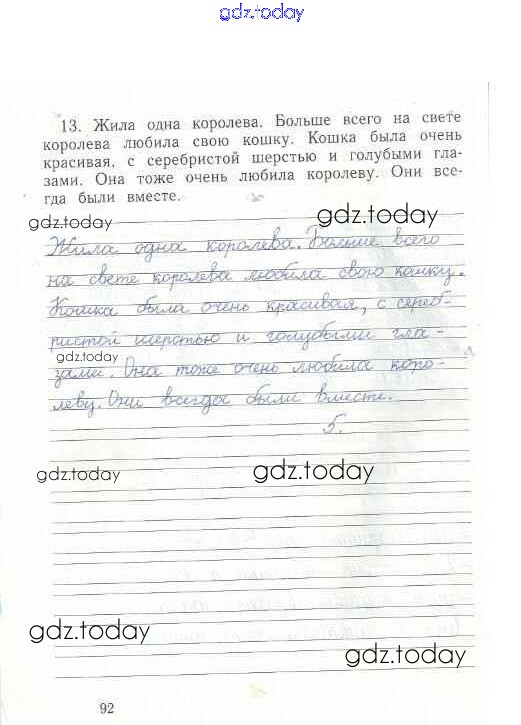 gdz.today
13. Жила одна королева. Больше всего на свете
королева любила свою кошку. Кошка была очень
красивая, с серебристой шерстью и голубыми гла-
зами. Она тоже очень любила королеву. Они все-
гда были вместе.
gdz.today
gdz.today
Жила одна королева. Больше всего
на свете королева любила свою кошку.
Кошка была очень красивая, с сереб-
ристой шерстью и голубыми гла-
gdz.today
зами. Она тоже очень любила коро-
леву. Они всегда были вместе.
5.
gdz.today
gdz.today
gdz.today
gdz.today
92